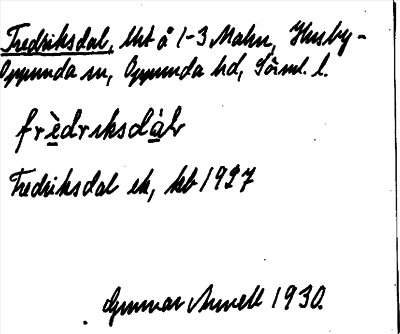 Fredriksdal, lht å 1-3 Malm, Husby-
Oppunda sn, Oppunda hd, Söml. l.
frèdriksdàl
Fredriksdal ek, kb 1927
Gunnar 1930.